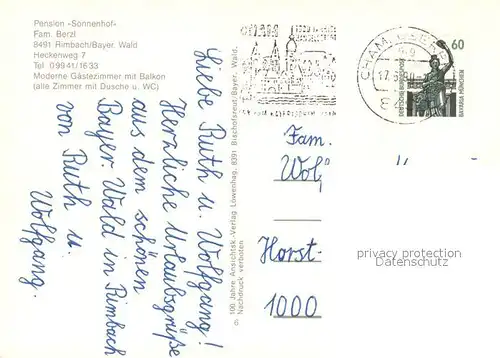 Pension »Sonnenhof«
Fam. Berzl
8491 Rimbach/Bayer. Wald
Heckenweg 7
Tel 09941/1633
Moderne Gästezimmer mit Balkon
(alle Zimmer mit Dusche u. WC)
Liebe Ruth u. Wolfgang!
Herzliche Urlaubsgrüße
aus dem schönen
Bayer Wald in Rimbach
von Ruth u.
Wolfgang.
100 Jahre Ansichtsk.-Verlag Löwenhag, 8391 Bischofsreut/Bayer. Wald.
Nachdruck verboten
CHAM
60
DEUTSCHE BUNDESPOST
BAVARIA MÜNCHEN
Fam.
Horst-
1000
privacy protection
Datenschutz